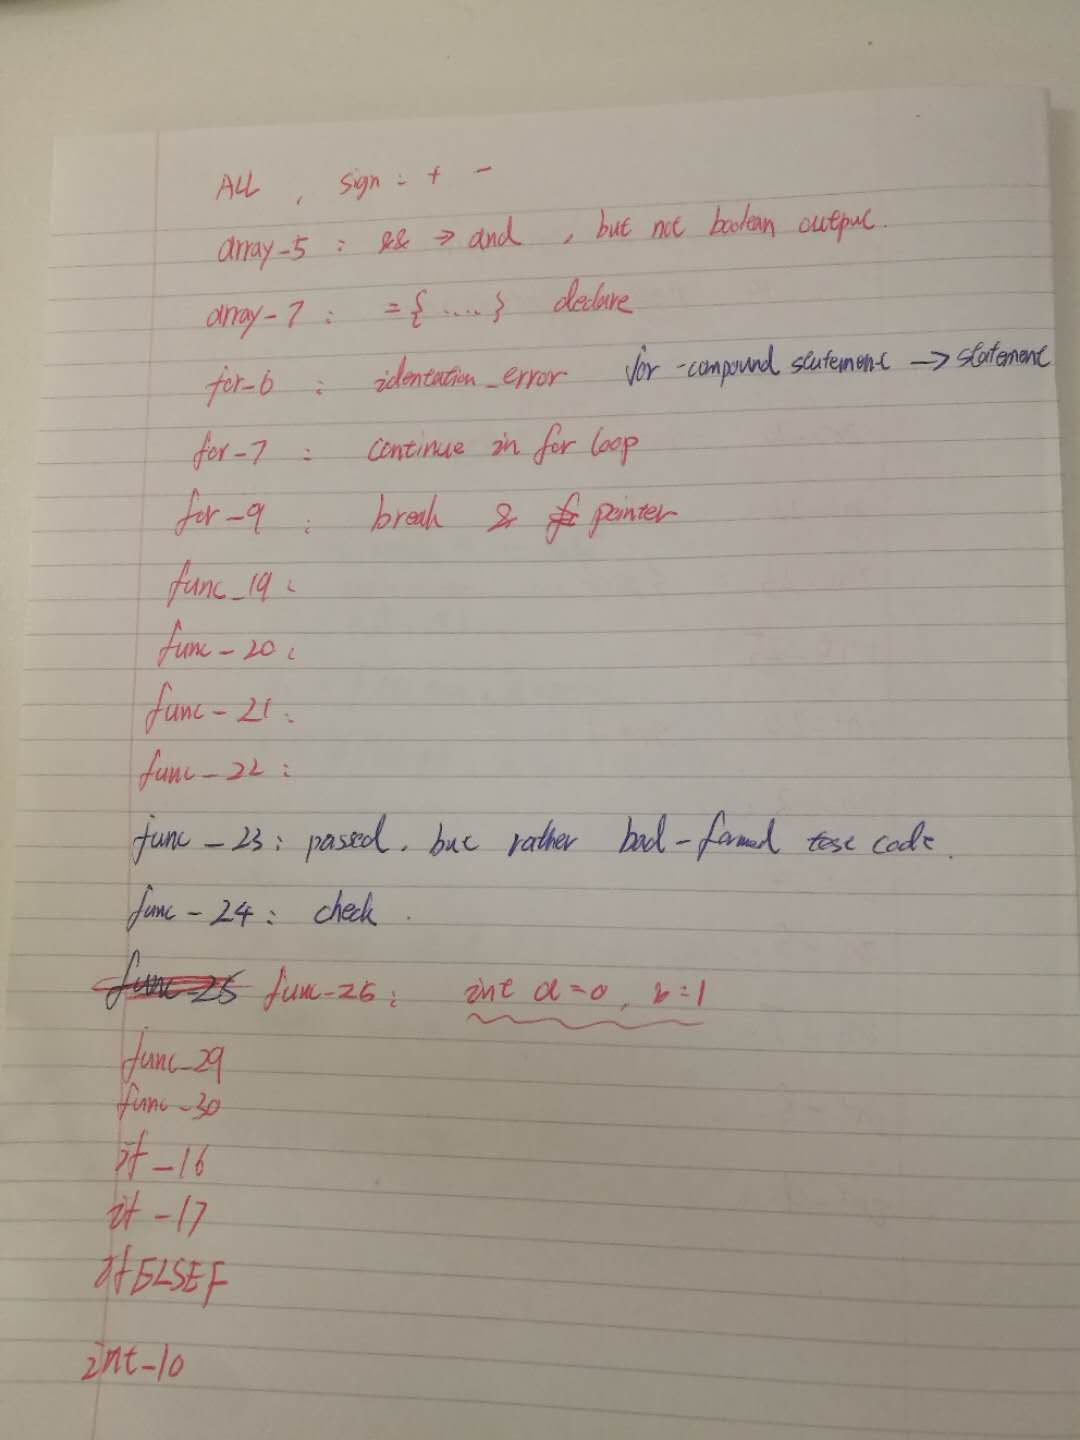 ALL , sign : + -
array-5 : && → and , but not boolean output.
array-7 : ={ ..... } declare
for-6 : identation_error for -compound statement → statement
for-7 : continue in for loop
for-9 : break & pointer
func_19 :
func-20 :
func-21 :
func-22 :
func-23 : passed, but rather bad-formed test code.
func-24 : check .
func-26 func-26 : int a=0, b=1
func_29
func-30
if-16
if-17
if ELSEF
int-10